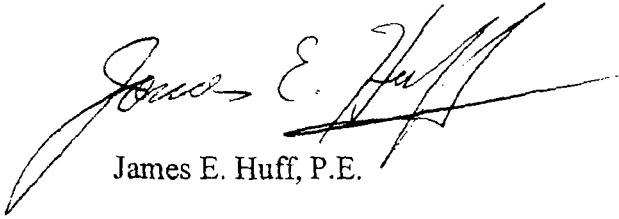 James E. Huff
James E. Huff, P.E.